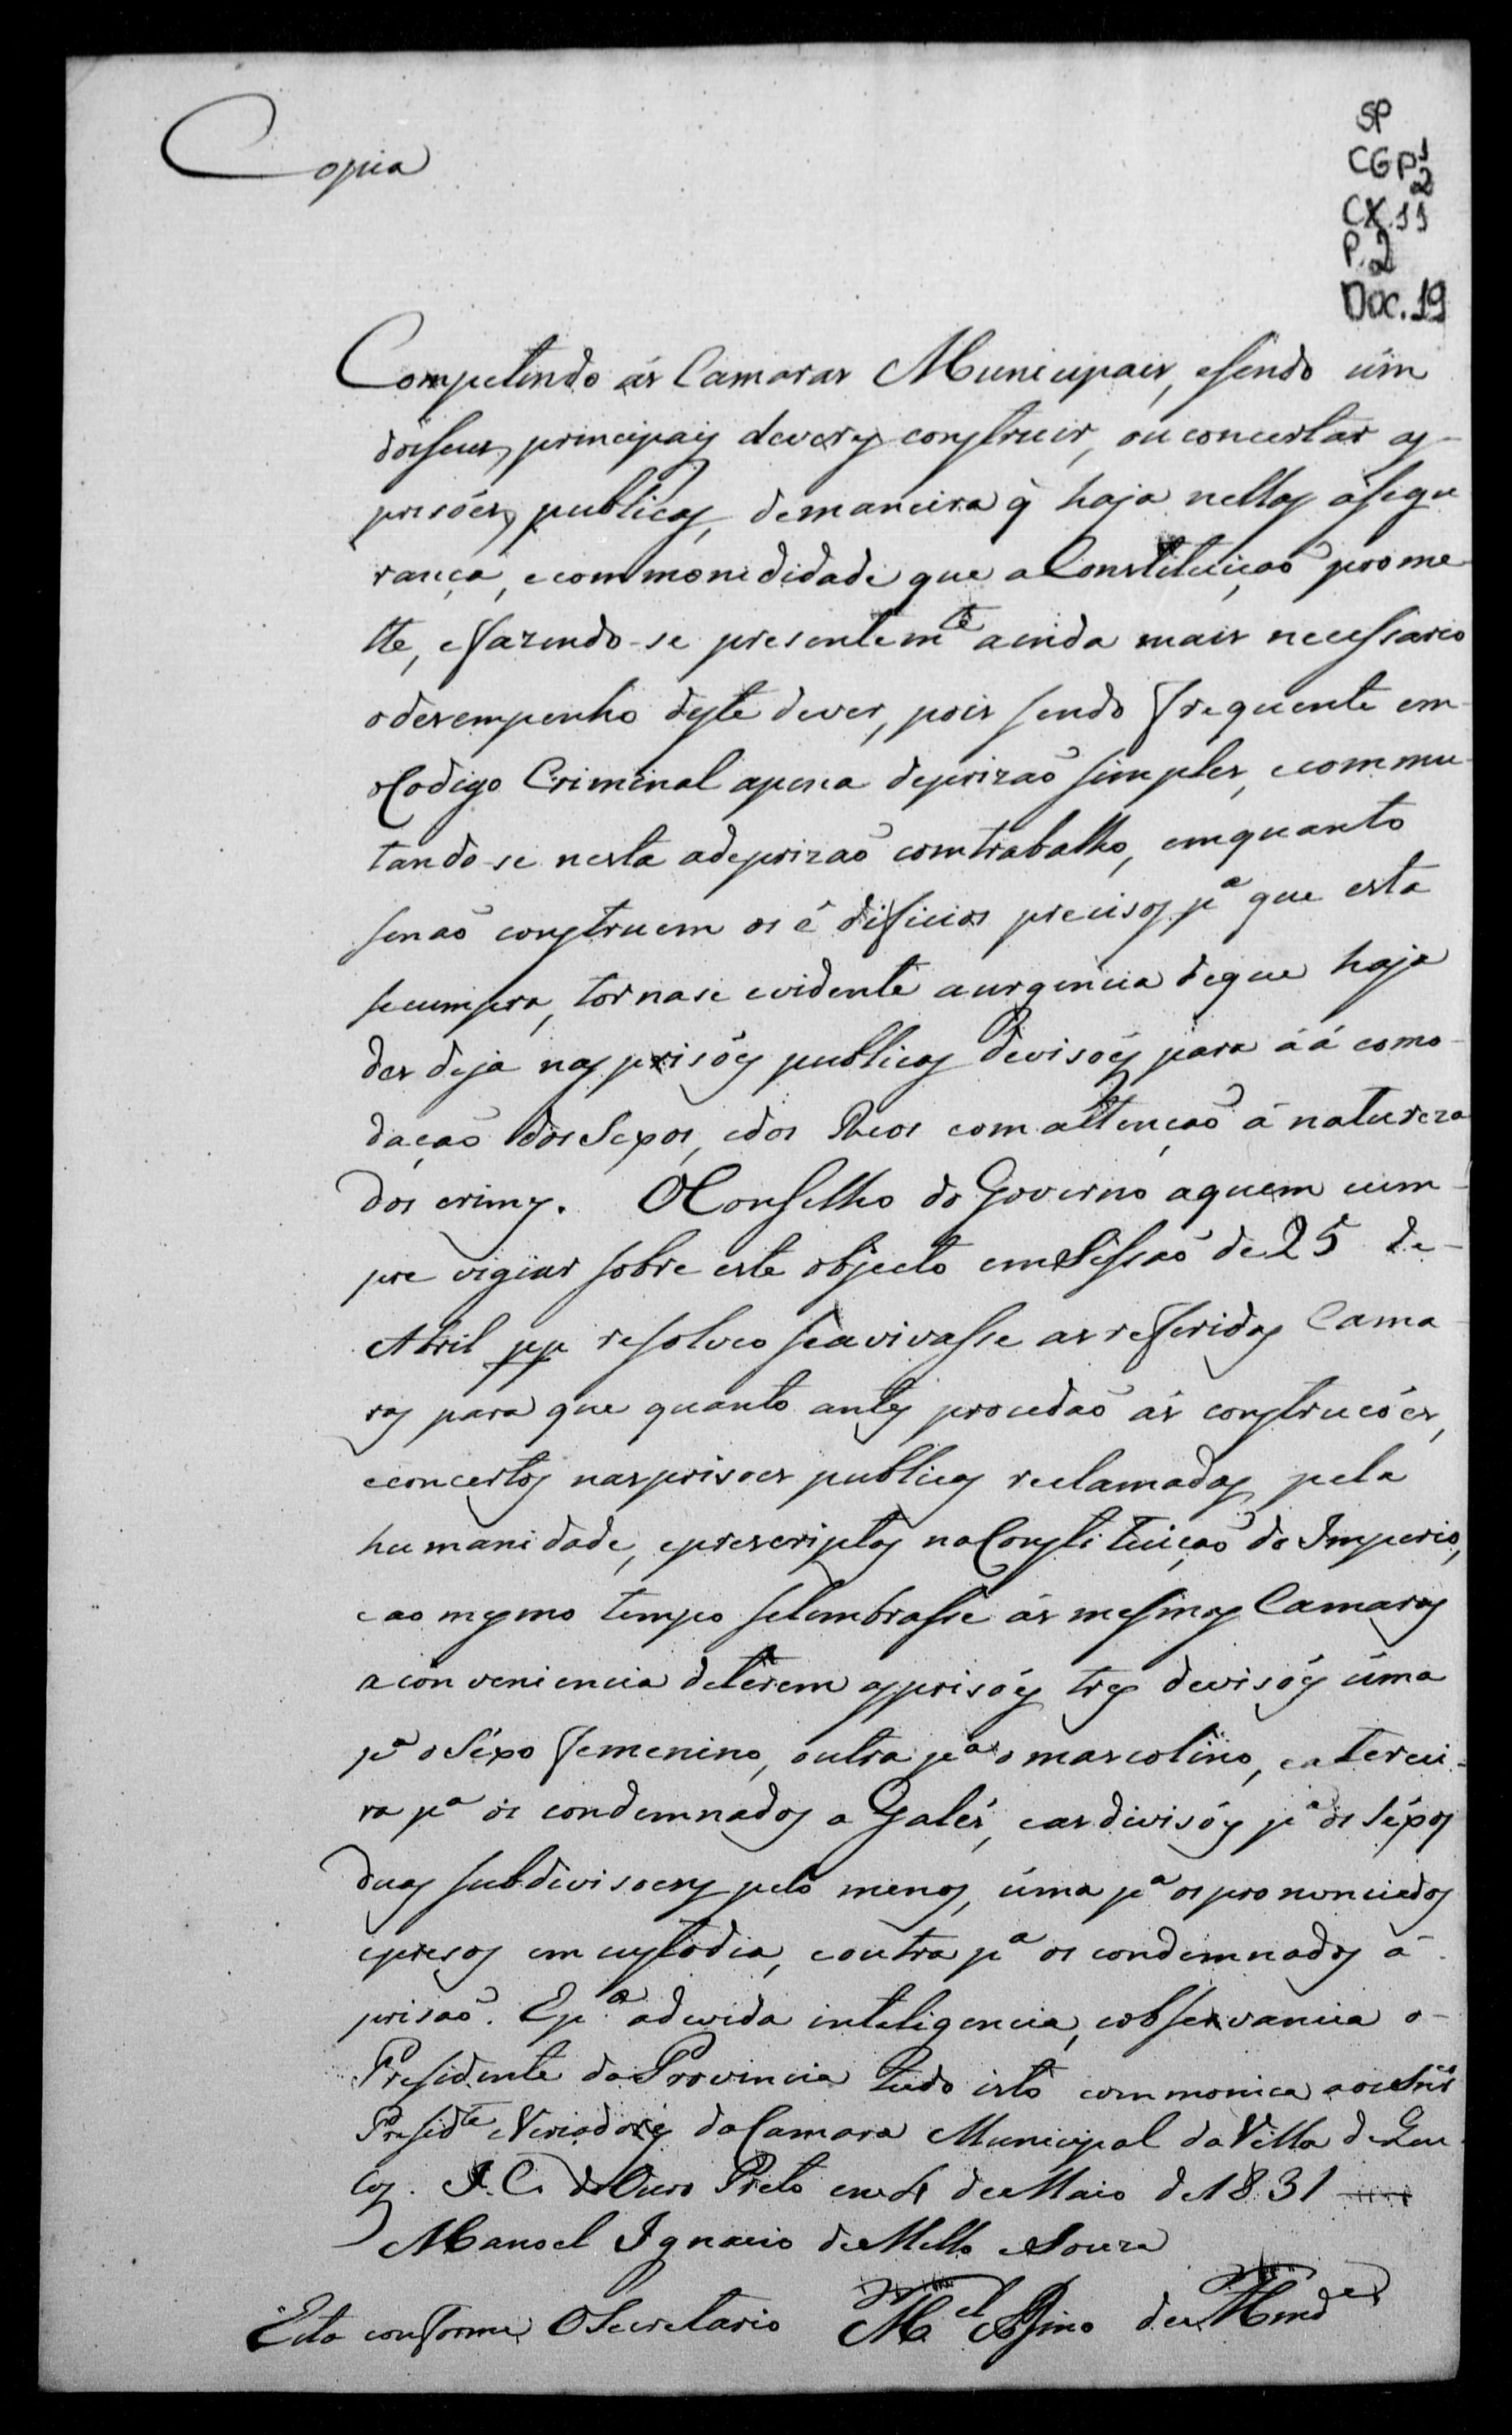 Copia
SP
CGP 1
2
CX.11
P.2
Doc.19
Competindo ás Camaras Municipais, esendo úm
dosseus principais deveres construir, ou concertar as
prisões publicas, demaneira q̃ haja nellas asegu
rança, ecommonedidade que a Constituiçaõ prome
tte, efazendo-se presentem.te ainda mais necessario
odesempenho deste dever, pois sendo frequente em
oCodigo Criminal apena deprizaõ simples, ecommu
tando-se nesta adeprizaõ comtrabalho, emquanto
senaõ construem os edificios precisos p.a que esta
secumpra, tornase evidente aurgencia deque haja
desdeja nas prisões publicas devisões para áácomo
daçaõ dos Sexos, edos Reos com attençaõ á natureza
dos crimes. OConselho do Governo aquem cum
pre vigiar sobre este objecto emSessaõ de 25 de
Abril pp resolveo seavivasse as referidas Cama
ras para que quanto antes procedaõ ás construcões,
econcertos nasprisoes publicas reclamadas pela
humanidade, eprescriptas naConstituiçaõ do Imperio,
eao mesmo tempo selembrasse ás mesmas Camaras
aconveniencia deterem asprisões tres devisões úma
p.a oSexo femenino, outra p.a o mascolino, eaTercei
ra p.a os condemnados a Galés, easdivisões p.a os Sexos
duas subdivisoens pelo menos, úma p.a ospronunciados
epresos em custodia, eoutra p.a os condemnados á
prisaõ. Ep.a adevida inteligencia, eobservancia o
Presidente daProvincia tudo isto commonica aosSnr.es
Presid.te eVereadores daCamara Municipal daVilla de
I. C. doOuro Preto em 4 deMaio de 1831
Manoel Ignacio deMello eSouza
Está conforme OSecretario M.el de Mend.es